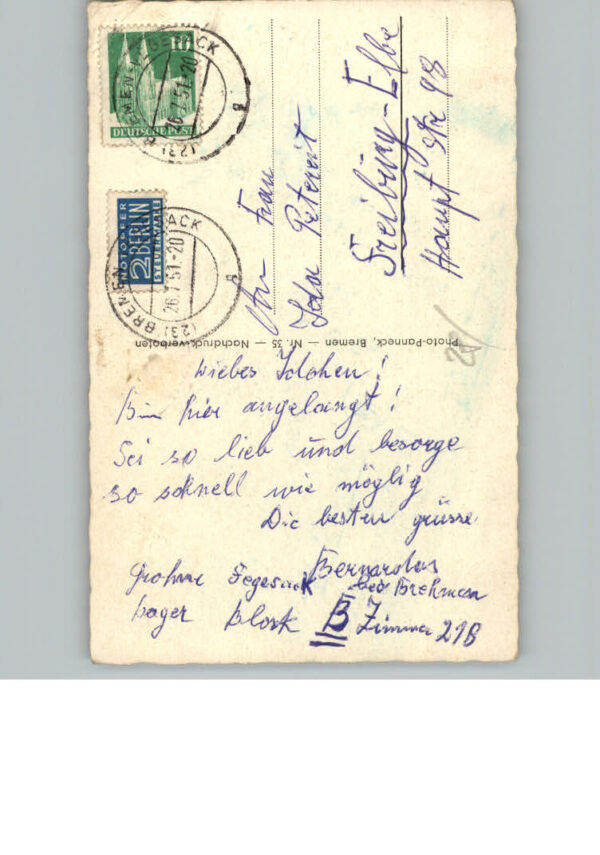 10
DEUTSCHE POST
(23) BREMEN-VEGESACK
26.7.51.-20
a
NOTOPFER
2 BERLIN
STEUERMARKE
(23) BREMEN
SACK
26.7.51.-20
a
An Frau
Ida Petereit
Freiburg-Elbe
Haupt Str 98
Photo-Panneck, Bremen — Nr. 35 — Nachdruck verboten
Liebes Idchen!
Bin hier angelangt!
Sei so lieb und besorge
so schnell wie möglig
Die besten grüsse
Bernardas
Grohne Fegesack bei Brehmen
Lager Block B Zimmer 21B